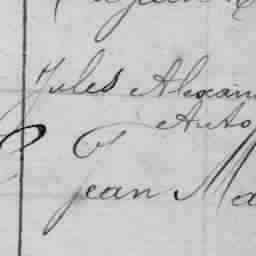 Jules Alexan
Anto
Jean Ma